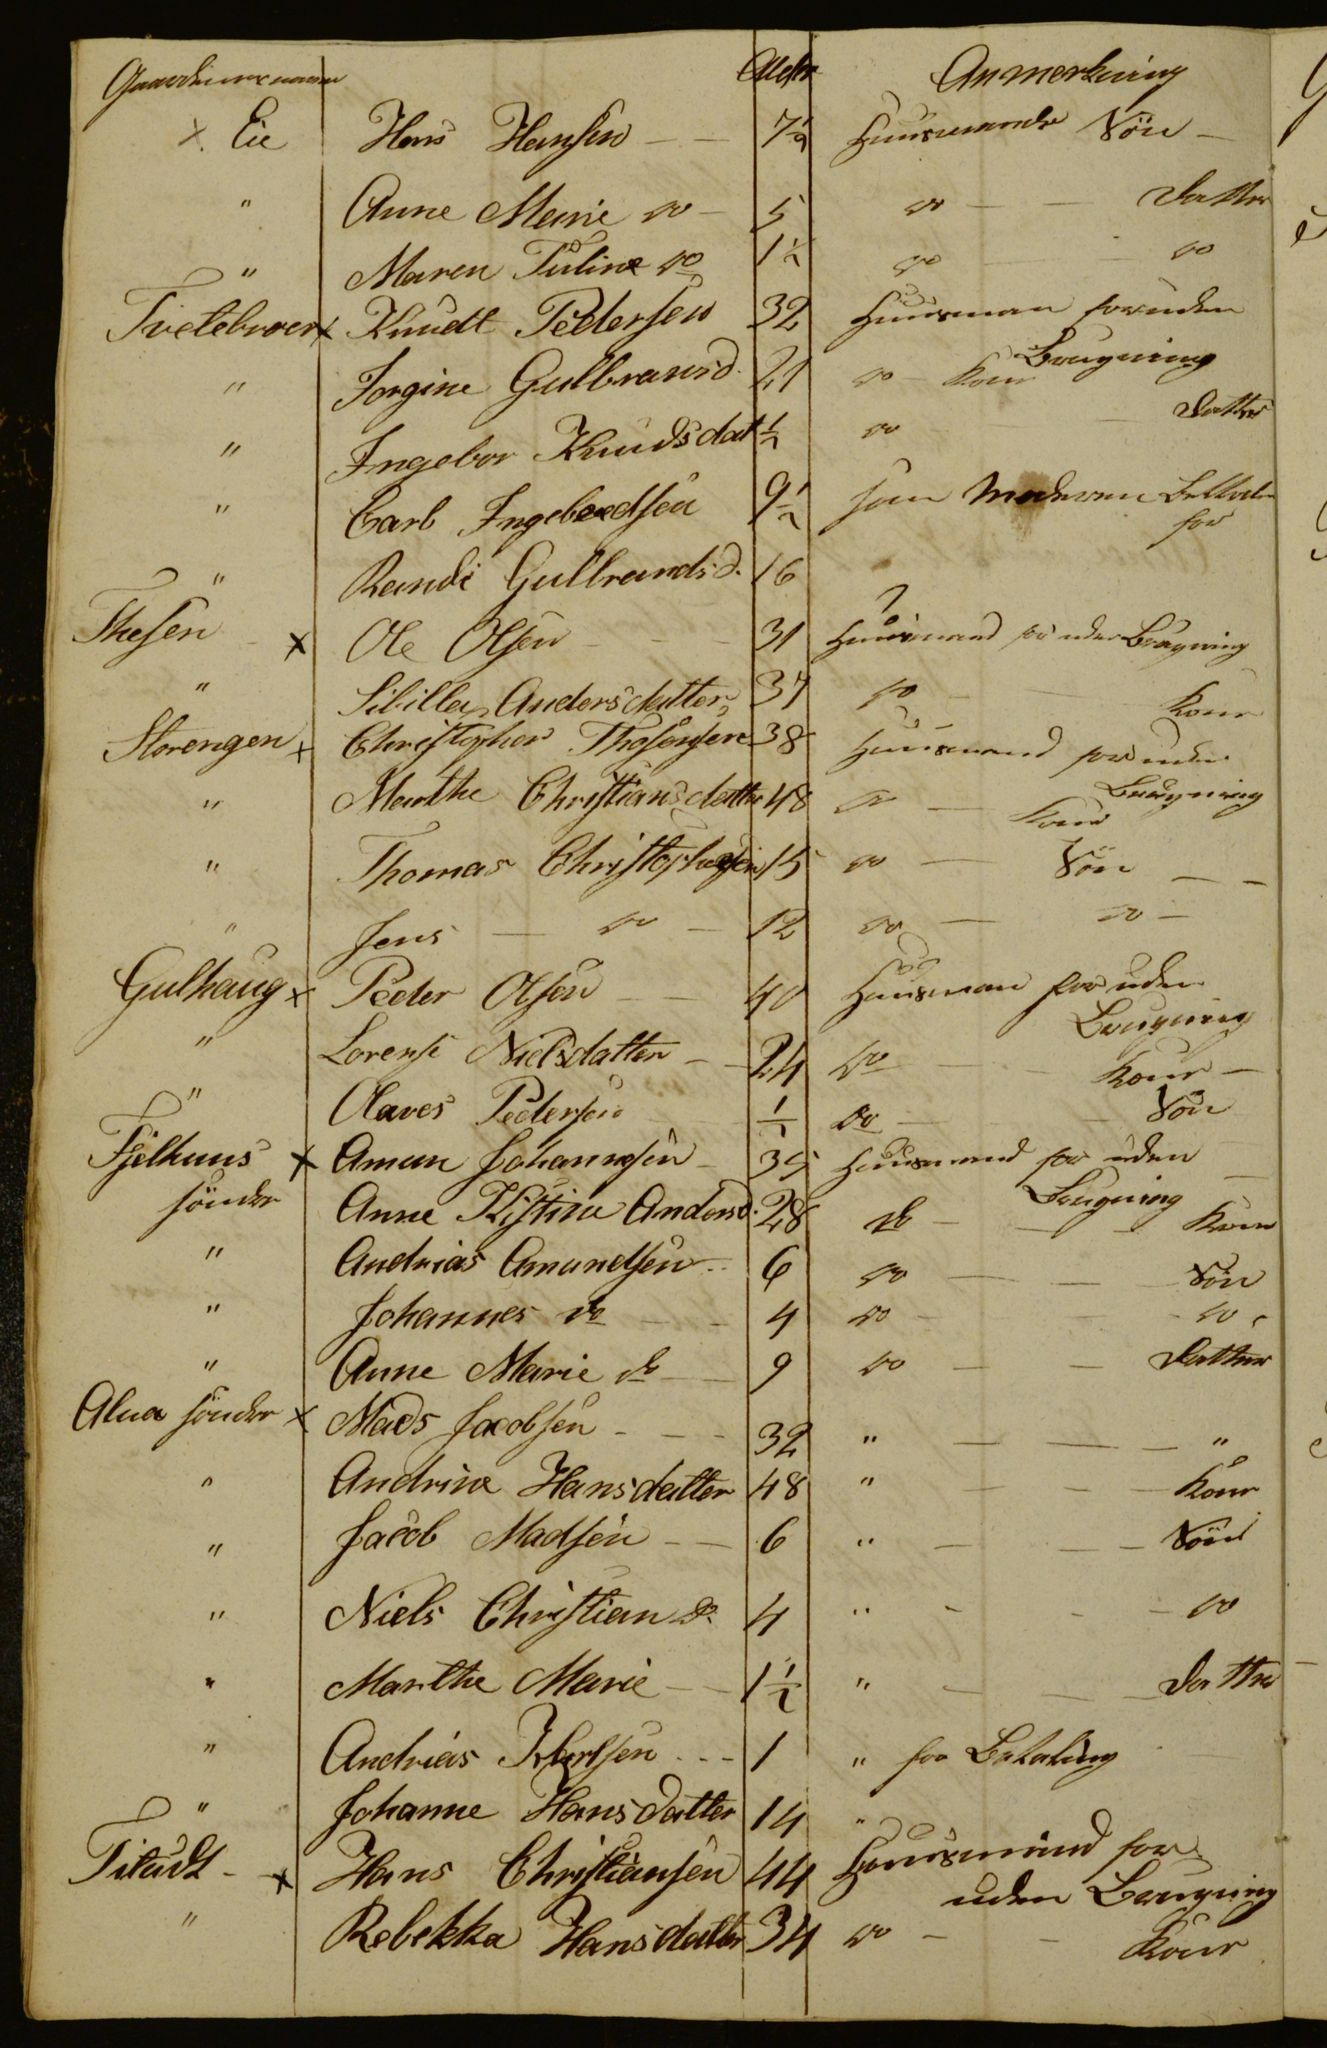 Gaardenes navne Alder Anmerkning
x Eie Hans Hansen — — 7½ Huusmands Sön —
" Anne Marie do — 5 do — — Datter
" Maren Juline do 1½ do — do
Tvetebroen x Knudt Pedersen 32 Huusman foruden
Brugning
" Jorgine Gulbransd. 21 do — Kone
" Ingebor Knudsdat ½ do — Datter
" Carl Ingebredsen 9½ som Moderen Betaler
for
" Randi Gulbrandsd. 16
Thesen x Ole Olsen — 31 Huusmand for uden Brugning
" Sibilla Andersdatter 37 do — Kone
Storengen x Christopher 38 Huusmand foruden
Brugning
" Marthe Christiansdatter 48 do — Kone
" Thomas Christophersen 15 do — Sön — —
" Jens — do — 12 do — do —
Gulhaug x Peder Olsen — — 40 Huusman for uden
Brugning
" Lorense Nielsdatter — 24 do — Kone —
" Olaves Pedersen ½ do — Sön
Fjelhuus x Amun Johannesen — 35 Huusmand for uden —
Brugning
sönder Anne Kistine Andersd. 28 do — Kone
" Andrias Amundsen — 6 do — — Sön
" Johannes do — — 4 do — — do
" Anne Marie do — 9 do — — Datter
Alna sönder x Mads Jacobsen — — — 32 " — — — "
" Andrine Hansdatter 48 " — — — Kone
" Jacob Madsen — — 6 " — — — Sön
" Niels Christian do 4 " — — — do
" Marthe Marie — — 1½ " — — — Datter
" Andrias 1 " for Betaling
" Johanne Hansdatter 14 "
x Hans Christiansen 44 Huusmand for
uden Brugning
" Rebekka Hansdatter 34 do — — Kone